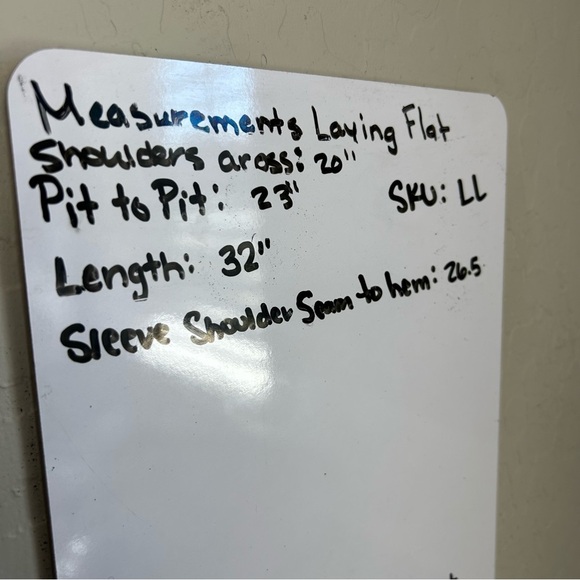 Measurements Laying Flat
Shoulders aross: 20"
Pit to Pit: 23"
SKU: LL
Length: 32"
Sleeve Shoulder Seam to hem: 26.5